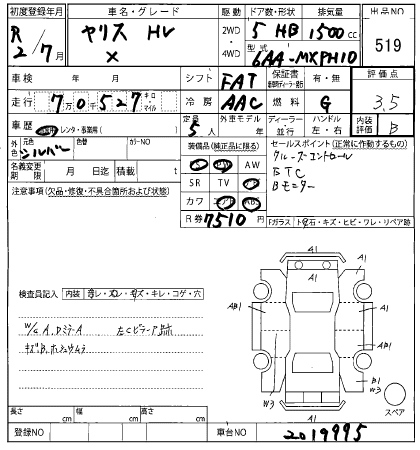 初度登録年月 車名・グレード 駆動 ドア数・形状 排気量 出品NO
R2/7月 ヤリス HV 2WD・4WD 5 HB 1500cc 519
X 型式 6AA-MXPH10
車検 年 月 シフト FAT 保証書 有・無 評価点
走行 70千527 キロ・マイル 冷房 AAC 燃料 G 3.5
車歴 レンタ・事業用( ) 定員 5人 外車モデル 年 ディーラー・並行 ハンドル 左・右 内装評価 B
外色 元色 シルバー 色替 カラーNO 装備品(純正品に限る) セールスポイント(正常に作動するもの)
名義変更期限 月 日迄 積載 t S PW AW クルーズコントロール
注意事項(欠品・修復・不具合箇所および状態) SR TV ナビ ETC
カワ エアB ABS Bモニター
R券 7510円 Fガラス トビ石・キズ・ヒビ・ワレ・リペア跡
検査員記入 内装 ヨゴレ・スレ・キズ・キレ・コゲ・穴
W/G A, DミラーA 左Cピラー凸跡
キズB,
A1
A1
A1
AB1
AB1
B1
W3
W3
A1
スペア
長さ cm 幅 cm 高さ cm
登録NO 車台NO 2019995